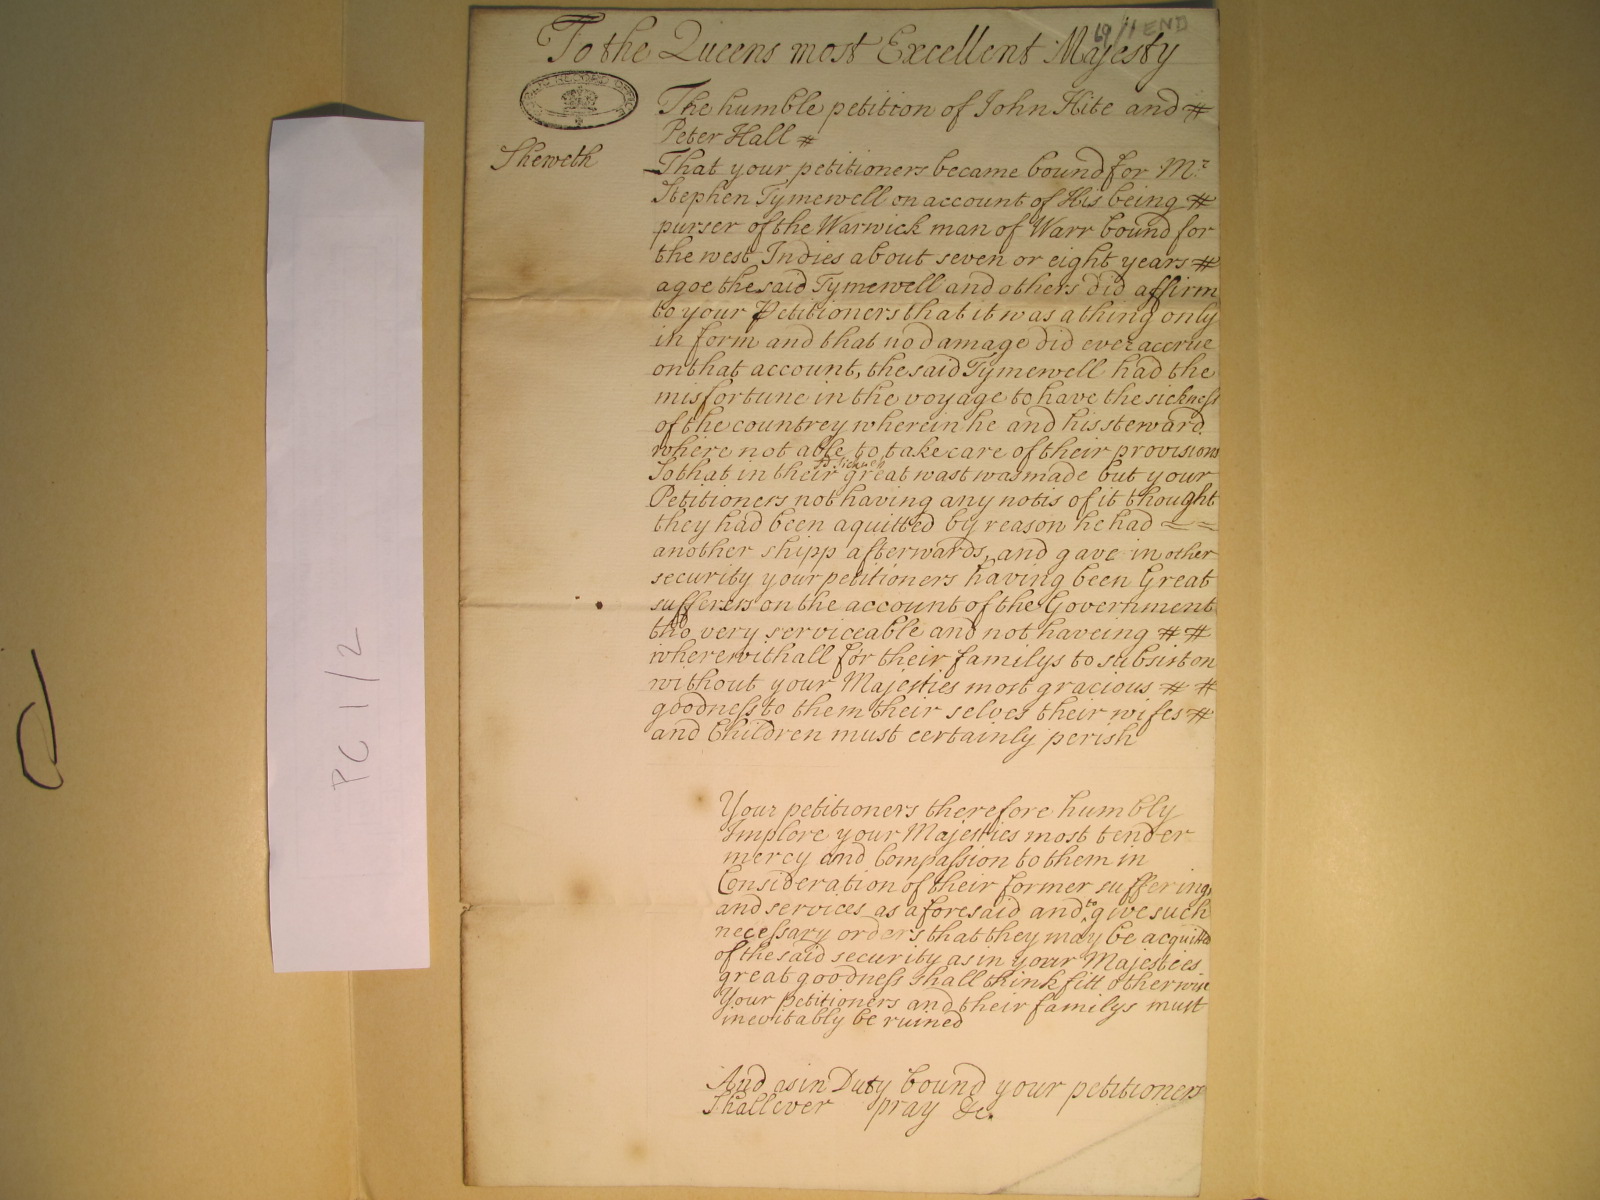 19/1 END
To the Queens most Excellent Majesty
PUBLIC RECORD OFFICE
The humble petition of John Hite and #
Peter Hall #
Sheweth
That your petitioners became bound for Mr
Stephen Tymewell on account of His being #
purser of the Warwick man of Warr bound for
the west Indies about seven or eight years #
agoe the said Tymewell and others did affirm
to your Petitioners that it was a thing only
in form and that no damage did ever accrue
on that account, the said Tymewell had the
misfortune in the voyage to have the sickness
of the countrey wherein he and his steward
where not able to take care of their provisions
So that in their sd sickness great wast was made but your
Petitioners not having any notis of it thought
they had been aquitted by reason he had = =
another shipp afterwards, and gave in other
security your petitioners having been Great
sufferers on the account of the Government
tho very serviceable and not haveing # #
wherewithall for their familys to subsist on
without your Majesties most gracious # #
goodness to them their selves their wifes #
and Children must certainly perish
Your petitioners therefore humbly
Implore your Majesties most tender
mercy and Compassion to them in
Consideration of their former sufferings
and services as aforesaid and to give such
necessary orders that they may be acquitted
of the said security as in your Majesties
great goodness shall think fitt otherwise
Your petitioners and their familys must
inevitably be ruined
And as in Duty bound your petitioners
Shall ever pray &c.
PC 1/2